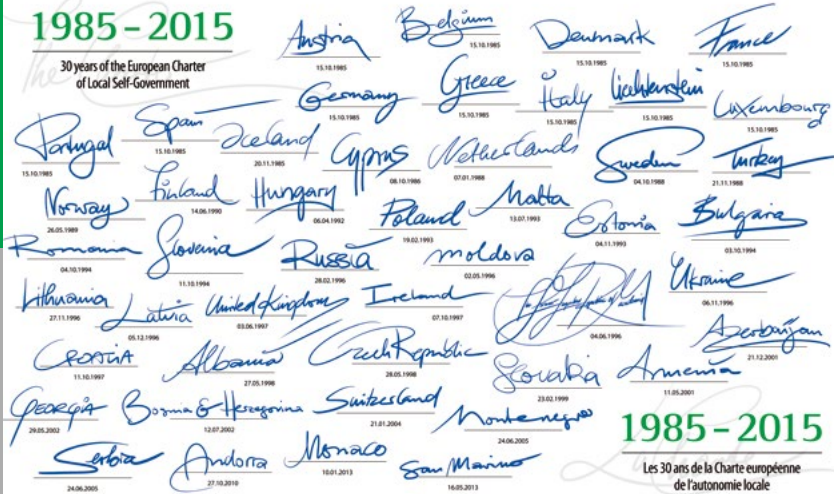 1985 – 2015
30 years of the European Charter
of Local Self-Government
Austria
15.10.1985
Belgium
15.10.1985
Denmark
15.10.1985
France
15.10.1985
Germany
15.10.1985
Greece
15.10.1985
Italy
15.10.1985
Liechtenstein
15.10.1985
Luxembourg
15.10.1985
Portugal
15.10.1985
Spain
15.10.1985
Iceland
20.11.1985
Cyprus
08.10.1986
Netherlands
07.01.1988
Sweden
04.10.1988
Turkey
21.11.1988
Norway
26.05.1989
Finland
14.06.1990
Hungary
06.04.1992
Poland
19.02.1993
Malta
13.07.1993
Estonia
04.11.1993
Bulgaria
03.10.1994
Romania
04.10.1994
Slovenia
11.10.1994
Russia
28.02.1996
moldova
02.05.1996
Ukraine
06.11.1996
Lithuania
27.11.1996
Latvia
05.12.1996
United Kingdom
03.06.1997
Ireland
07.10.1997
04.06.1996
Azerbaijan
21.12.2001
CROATIA
11.10.1997
Albania
27.05.1998
Czech Republic
28.05.1998
Slovakia
23.02.1999
Armenia
11.05.2001
GEORGIA
29.05.2002
Bosnia & Herzegovina
12.07.2002
Switzerland
21.01.2004
Montenegro
24.06.2005
Serbia
24.06.2005
Andorra
27.10.2010
Monaco
10.01.2013
San Marino
16.05.2013
1985 – 2015
Les 30 ans de la Charte européenne
de l'autonomie locale